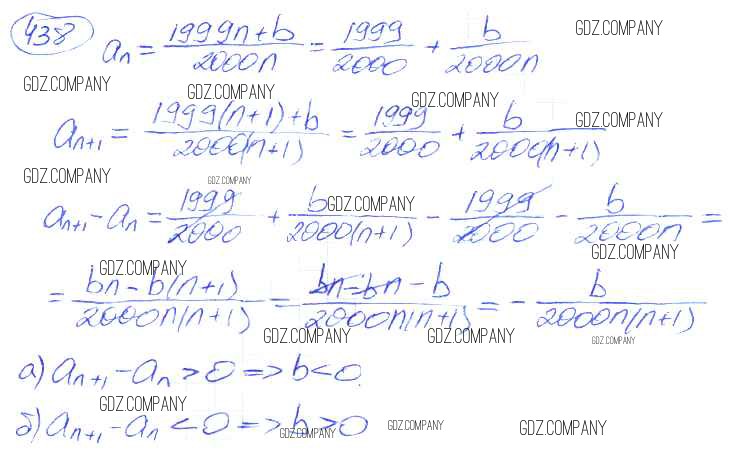 438 aₙ = (1999n+b)/(2000n) = 1999/2000 + b/(2000n) GDZ.COMPANY
GDZ.COMPANY GDZ.COMPANY GDZ.COMPANY
aₙ₊₁ = (1999(n+1)+b)/(2000(n+1)) = 1999/2000 + b/(2000(n+1)) GDZ.COMPANY
GDZ.COMPANY GDZ.COMPANY
aₙ₊₁ - aₙ = 1999/2000 + b/(2000(n+1)) - 1999/2000 - b/(2000n) = GDZ.COMPANY
GDZ.COMPANY GDZ.COMPANY
= (bn - b(n+1))/(2000n(n+1)) = (bn - bn - b)/(2000n(n+1)) = - b/(2000n(n+1))
GDZ.COMPANY GDZ.COMPANY GDZ.COMPANY
а) aₙ₊₁ - aₙ > 0 => b < 0.
GDZ.COMPANY
б) aₙ₊₁ - aₙ < 0 => b > 0
GDZ.COMPANY GDZ.COMPANY GDZ.COMPANY